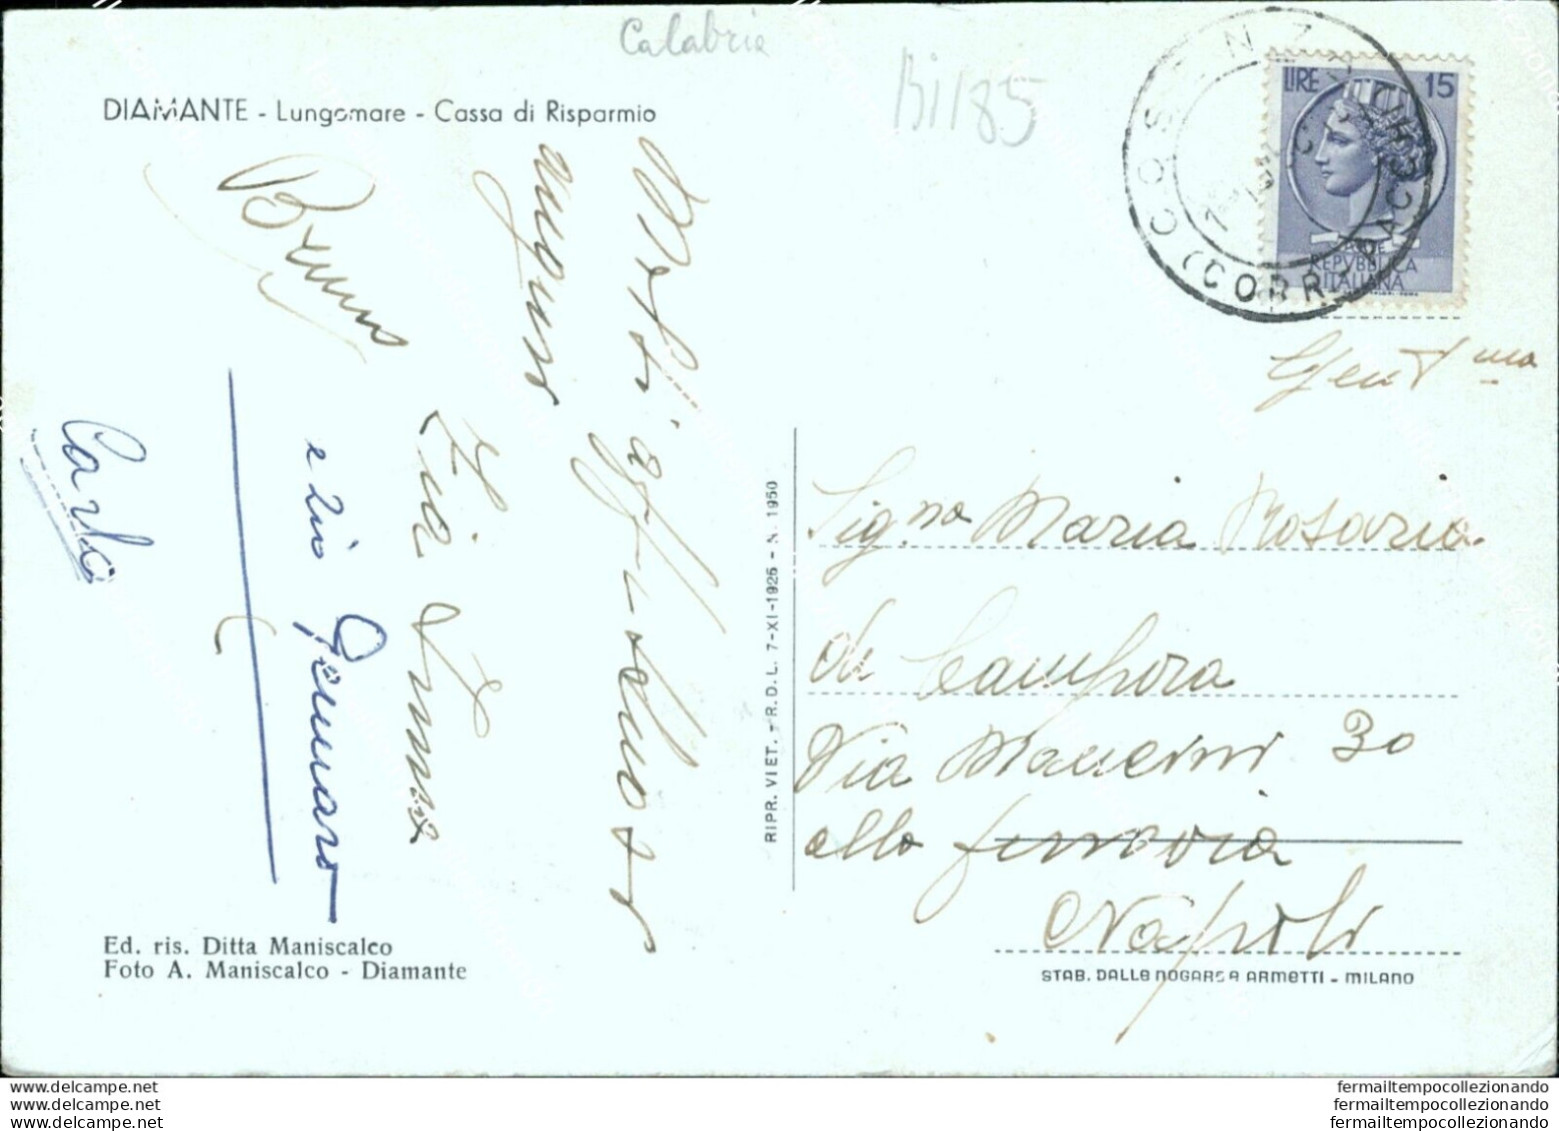 Calabria
Bi185
DIAMANTE - Lungomare - Cassa di Risparmio
COSENZA
(CORR. PACCHI
LIRE 15
REPVBBLICA
ITALIANA
Molti affettuosi
auguri
Zia Anna
e zio Gennaro
Bruno
Carlo
RIPR. VIET. - R.D.L. 7-XI-1925 - N. 1950
Gent.ma
Sig.na Maria Rosaria
de Campora
Via Mancini 30
alla ferrovia
Napoli
Ed. ris. Ditta Maniscalco
Foto A. Maniscalco - Diamante
STAB. DALLE NOGARE E ARMETTI - MILANO
www.delcampe.net
www.delcampe.net
www.delcampe.net
fermailtempocollezionando
fermailtempocollezionando
fermailtempocollezionando